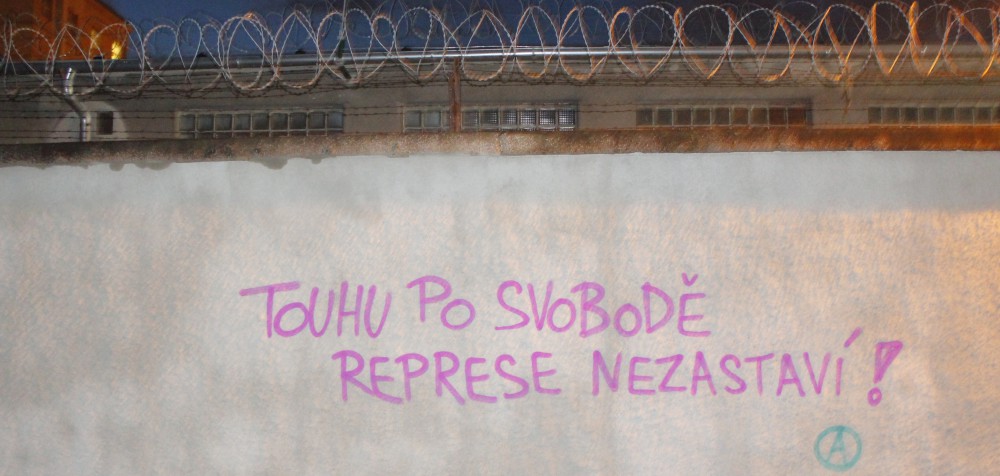 TOUHU PO SVOBODĚ
REPRESE NEZASTAVÍ!
Ⓐ